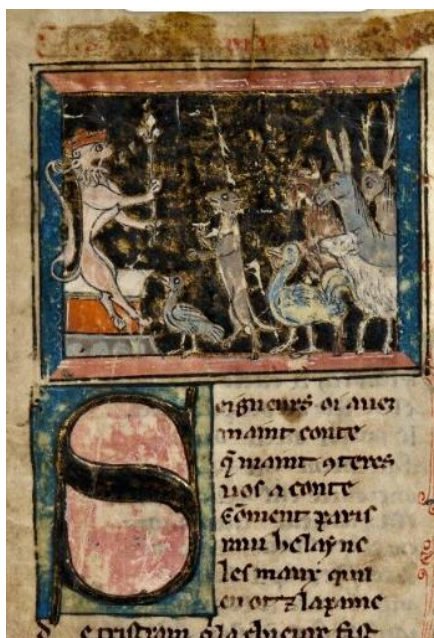 S
eigneurs oi avez
maint conte
q̃ maint 9teres
vos a conte
Cõment paris
raui helayne
les maux quil
en ot ⁊ la paine
e tristram q̃ la chieure fist